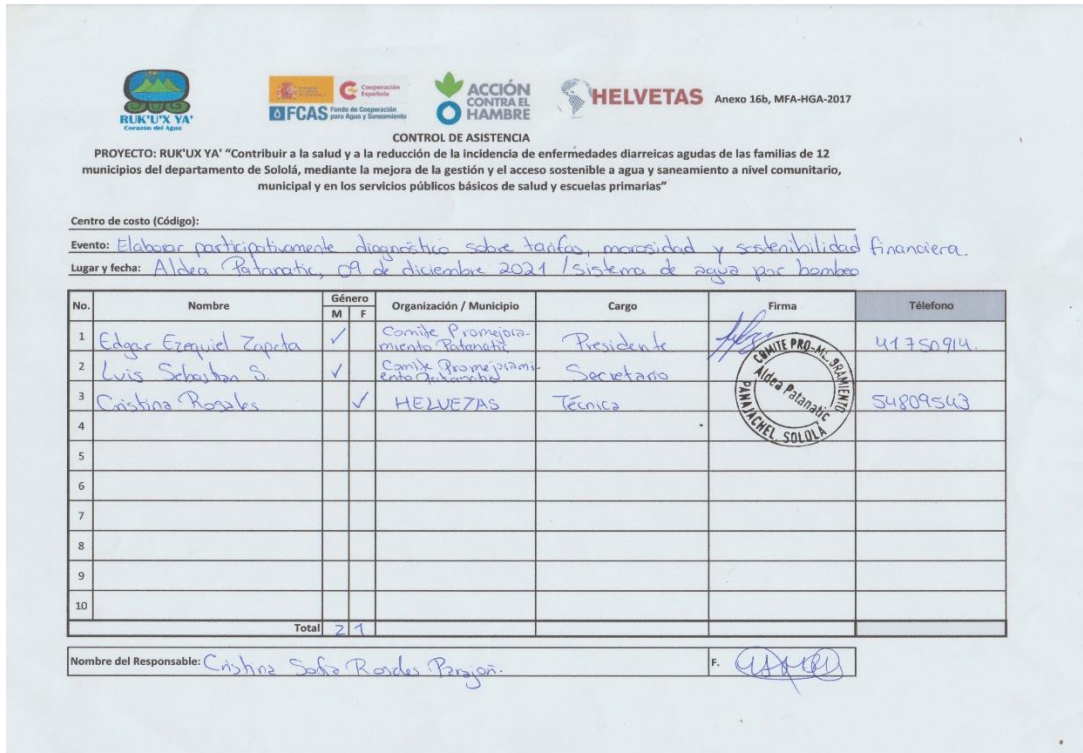 RUK'U'X YA'
Corazón del Agua
Cooperación Española
FCAS Fondo de Cooperación para Agua y Saneamiento
ACCIÓN CONTRA EL HAMBRE
HELVETAS Anexo 16b, MFA-HGA-2017
CONTROL DE ASISTENCIA
PROYECTO: RUK'UX YA' “Contribuir a la salud y a la reducción de la incidencia de enfermedades diarreicas agudas de las familias de 12
municipios del departamento de Sololá, mediante la mejora de la gestión y el acceso sostenible a agua y saneamiento a nivel comunitario,
municipal y en los servicios públicos básicos de salud y escuelas primarias”
Centro de costo (Código):
Evento: Elaborar participativamente diagnóstico sobre tarifas, morosidad y sostenibilidad financiera.
Lugar y fecha: Aldea Patanatic, 09 de diciembre 2021 / sistema de agua por bombeo
No. Nombre Género M F Organización / Municipio Cargo Firma Télefono
1 Edgar Ezequiel Zapeta ✓ Comite Promejoramiento Patanatic Presidente 41750914.
2 Luis Sebastian S. ✓ Comite Promejoramiento Patanatic Secretario
3 Cristina Rosales ✓ HELVETAS Técnica 54809543
COMITE PRO-MEJORAMIENTO
Aldea Patanatic
PANAJACHEL, SOLOLÁ
4
5
6
7
8
9
10
Total 2 1
Nombre del Responsable: Cristina Sofia Rosales F.